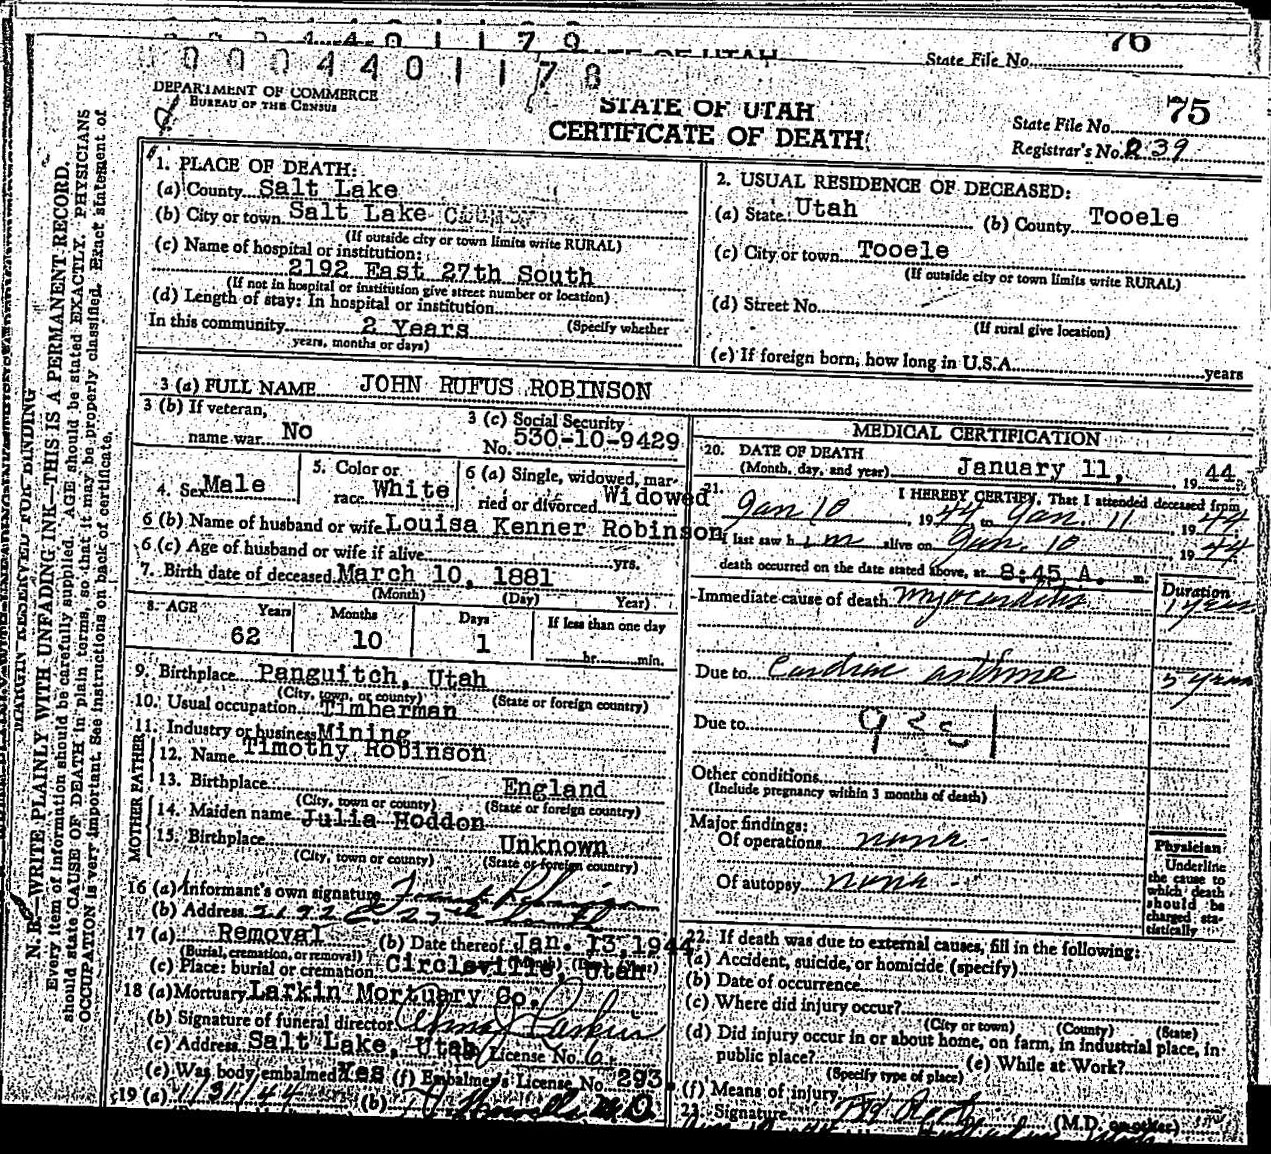 0 0 0 4 4 0 1 1 7 9
STATE OF UTAH
76
State File No.
0 0 0 4 4 0 1 1 7 8
DEPARTMENT OF COMMERCE
BUREAU OF THE CENSUS
STATE OF UTAH
CERTIFICATE OF DEATH
State File No. 75
Registrar's No. 239
MARGIN RESERVED FOR BINDING
N. B.—WRITE PLAINLY WITH UNFADING INK—THIS IS A PERMANENT RECORD.
Every item of information should be carefully supplied. AGE should be stated EXACTLY. PHYSICIANS
should state CAUSE OF DEATH in plain terms, so that it may be properly classified. Exact statement of
OCCUPATION is very important. See instructions on back of certificate.
1. PLACE OF DEATH:
(a) County Salt Lake
(b) City or town Salt Lake
(If outside city or town limits write RURAL)
(c) Name of hospital or institution:
2192 East 27th South
(If not in hospital or institution give street number or location)
(d) Length of stay: In hospital or institution
In this community 2 Years (Specify whether
years, months or days)
2. USUAL RESIDENCE OF DECEASED:
(a) State Utah (b) County Tooele
(c) City or town Tooele
(If outside city or town limits write RURAL)
(d) Street No.
(If rural give location)
(e) If foreign born, how long in U.S.A. years
3 (a) FULL NAME JOHN RUFUS ROBINSON
3 (b) If veteran,
name war No
3 (c) Social Security
No. 530-10-9429
4. Sex Male
5. Color or
race White
6 (a) Single, widowed, mar-
ried or divorced Widowed
6 (b) Name of husband or wife Louisa Kenner Robinson
6 (c) Age of husband or wife if alive yrs.
7. Birth date of deceased March 10, 1881
(Month) (Day) Year)
8. AGE Years Months Days If less than one day
62 10 1 hr. min.
9. Birthplace Panguitch, Utah
(City, town, or county) (State or foreign country)
10. Usual occupation Timberman
11. Industry or business Mining
FATHER
12. Name Timothy Robinson
13. Birthplace England
(City, town or county) (State or foreign country)
MOTHER
14. Maiden name Julia Hoddon
15. Birthplace Unknown
(City, town or county) (State or foreign country)
16 (a) Informant's own signature Frank Robinson
(b) Address 2192 E 27th South
17 (a) Removal (b) Date thereof Jan. 13, 1944
(Burial, cremation, or removal)
(c) Place: burial or cremation Circleville, Utah
18 (a) Mortuary Larkin Mortuary Co.
(b) Signature of funeral director Larkin
(c) Address Salt Lake, Utah License No. 6
(e) Was body embalmed? Yes (f) Embalmer's License No. 293
19 (a) 1/31/44 (b) M.D.
MEDICAL CERTIFICATION
20. DATE OF DEATH
(Month, day, and year) January 11, 1944
21. I HEREBY CERTIFY, That I attended deceased from
Jan 10, 1944 to Jan. 11 1944
I last saw him alive on Jan. 10 1944
death occurred on the date stated above, at 8:45 A. m.
Duration
Immediate cause of death myocarditis 1 year
Due to Cardiac asthma 5 years
Due to
Other conditions
(Include pregnancy within 3 months of death)
Major findings:
Of operations none
Of autopsy none
Physician
Underline
the cause to
which death
should be
charged sta-
tistically
22. If death was due to external causes, fill in the following:
(a) Accident, suicide, or homicide (specify)
(b) Date of occurrence
(c) Where did injury occur?
(City or town) (County) (State)
(d) Did injury occur in or about home, on farm, in industrial place, in
public place? (e) While at Work?
(Specify type of place)
(f) Means of injury
23. Signature (M.D. or other)